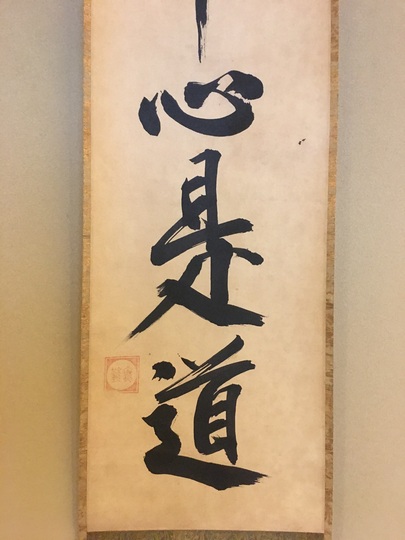 心是道